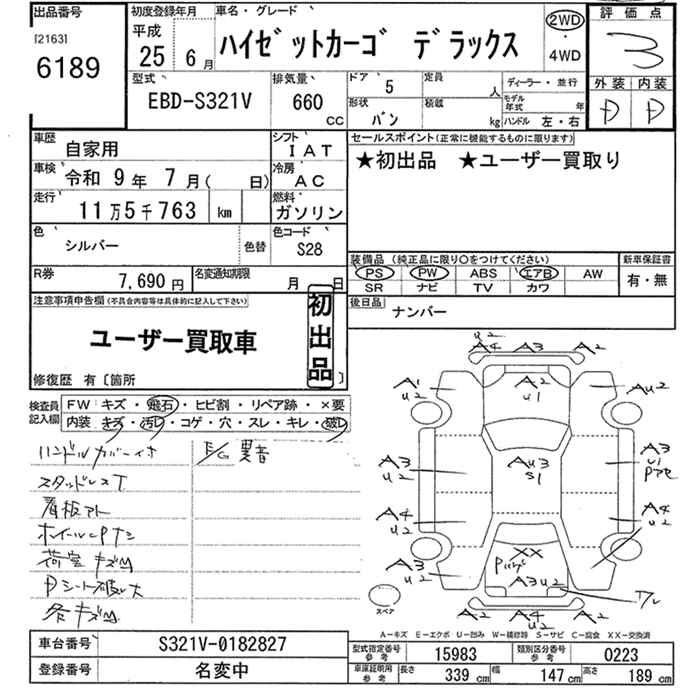 出品番号
[2163]
6189
初度登録年月
平成
25年 6月
車名・グレード
ハイゼットカーゴ デラックス
2WD
・
4WD
評価点
3
外装 内装
D D
型式
EBD-S321V
排気量
660
CC
ドア 5
形状 バン
定員 人
積載 kg
ディーラー・並行
モデル年式 年
ハンドル 左・右
車歴 自家用
シフト IAT
車検 令和 9年 7月( 日)
冷房 AC
走行 11万5千763 km
燃料 ガソリン
色 シルバー 色替
色コード S28
R券 7,690円
名変通知期限 月 日
セールスポイント(正常に機能するものに限ります)
★初出品 ★ユーザー買取り
装備品 (純正品に限り○をつけてください)
PS PW ABS エアB AW
SR ナビ TV カワ
新車保証書
有・無
後日品 ナンバー
注意事項申告欄(不具合内容等は具体的に記入して下さい)
ユーザー買取車
初出品
修復歴 有〔箇所 〕
検査員記入欄
FW キズ・飛石・ヒビ割・リペア跡・×要
内装 キズ・汚レ・コゲ・穴・スレ・キレ・破レ
ハンドルカバー
E/G 異音
スタッドレスT
看板アト
荷室キズM
Dシート破レ大
各キズM
U2
A4 A3 A2
A1
U2
A2
U1
AU2
A3
U2
AU3
S1
A3
U1
A4
U2
A4
U2
A3
U2
XX
A3U2
A2 A4 A2
U2
スペア
A-キズ E-エクボ U-凹み W-補修跡 S-サビ C-腐食 XX-交換済
車台番号 S321V-0182827
登録番号 名変中
型式指定番号 参考 15983
類別区分番号 参考 0223
車庫証明用 参考 長さ 339 cm 幅 147 cm 高さ 189 cm